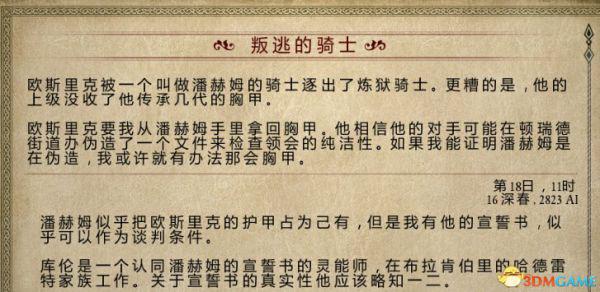 叛逃的骑士
欧斯里克被一个叫做潘赫姆的骑士逐出了炼狱骑士。更糟的是，他的
上级没收了他传承几代的胸甲。
欧斯里克要我从潘赫姆手里拿回胸甲。他相信他的对手可能在顿瑞德
街道办伪造了一个文件来检查领会的纯洁性。如果我能证明潘赫姆是
在伪造，我或许就有办法那会胸甲。
第 18日，11时
16 深春, 2823 AI
潘赫姆似乎把欧斯里克的护甲占为己有，但是我有他的宣誓书，似
乎可以作为谈判条件。
库伦是一个认同潘赫姆的宣誓书的灵能师，在布拉肯伯里的哈德雷
特家族工作。关于宣誓书的真实性他应该略知一二。
3DMGAME